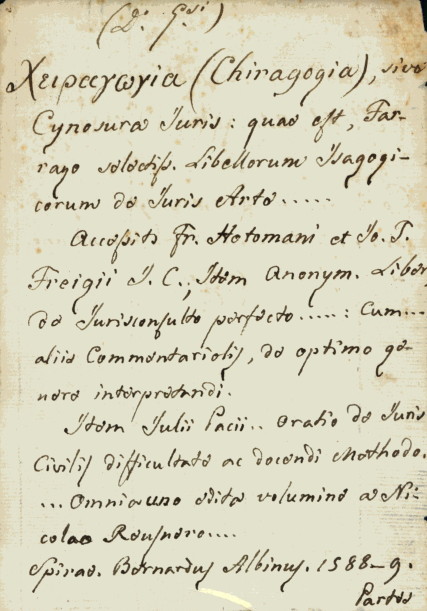 (D. G.si)
Χειραγωγια (Chiragogia), sive
Cynosura Iuris: quae est, Far-
rago selectiss. Libellorum Isagogi-
corum de Iuris Arte.....
Accessit Fr. Hotomani et Io. T.
Freigii I. C., Item Anonym. Liber
de Iurisconsulto perfecto.....: Cum...
aliis Commentariolis, de optimo ge-
nere interpretandi.
Item Iulii Pacii.. Oratio de Iuris
Civilis difficultate ac docendi Methodo.
... Omnia uno edita volumine a Ni-
colao Reusnero....
Spirae. Bernardus Albinus. 1588-9.
Partes